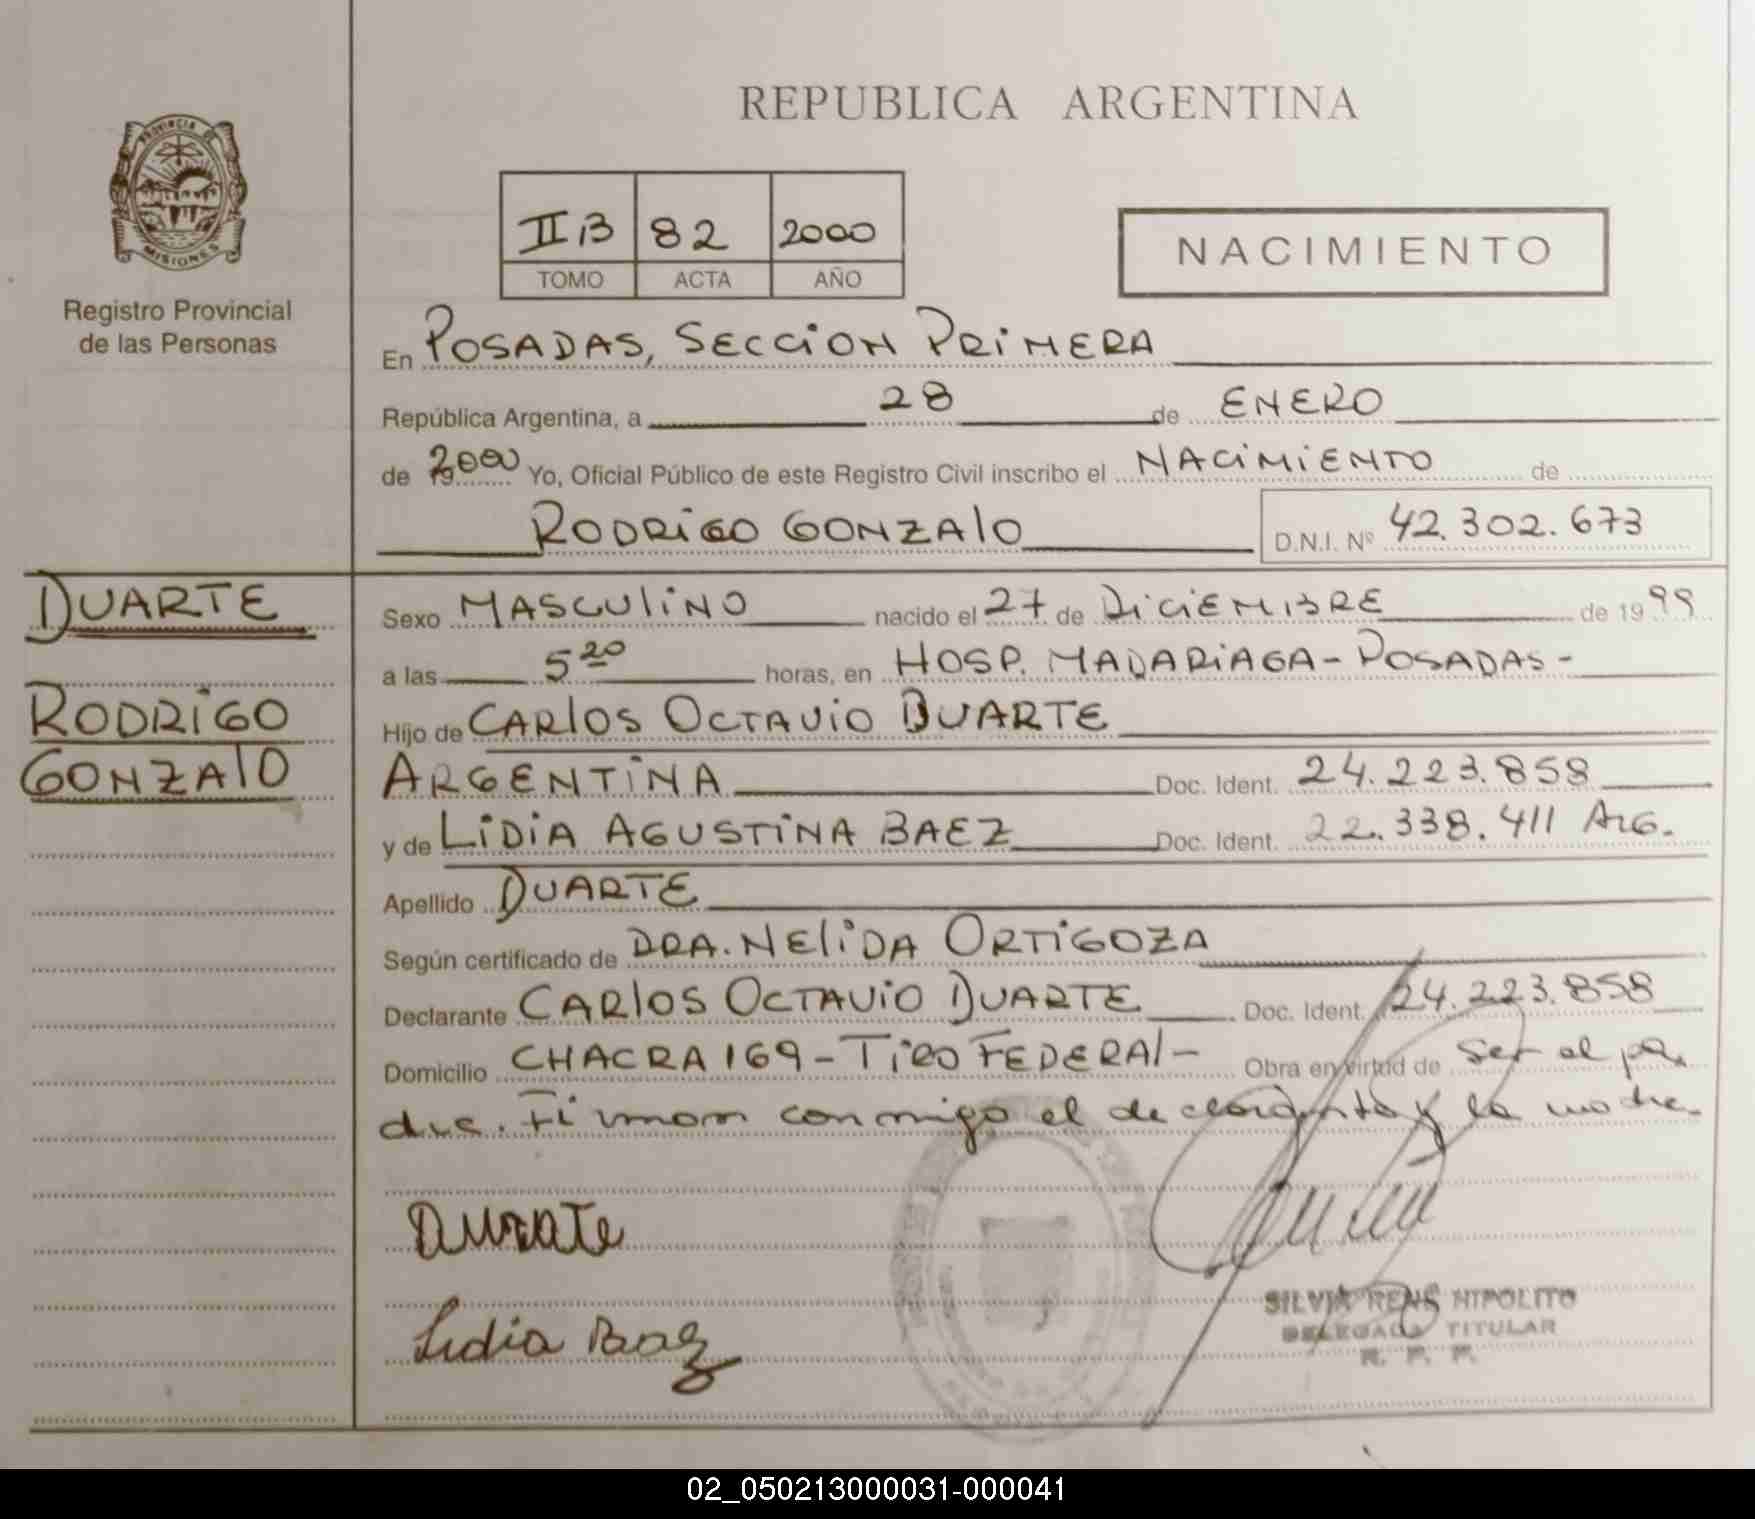 REPUBLICA ARGENTINA
PROVINCIA DE
MISIONES
Registro Provincial
de las Personas
II B 82 2000
TOMO ACTA AÑO
NACIMIENTO
En POSADAS, SECCION PRIMERA
República Argentina, a 28 de ENERO
de 2000 Yo, Oficial Público de este Registro Civil inscribo el NACIMIENTO de
RODRIGO GONZALO D.N.I. Nº 42.302.673
DUARTE
RODRIGO
GONZALO
Sexo MASCULINO nacido el 27 de DICIEMBRE de 1999
a las 5 20 horas, en HOSP. MADARIAGA - POSADAS -
Hijo de CARLOS OCTAVIO DUARTE
ARGENTINA Doc. Ident. 24.223.858
y de LIDIA AGUSTINA BAEZ Doc. Ident. 22.338.411 ARG.
Apellido DUARTE
Según certificado de DRA. NELIDA ORTIGOZA
Declarante CARLOS OCTAVIO DUARTE Doc. Ident. 24.223.858
Domicilio CHACRA 169 - TIRO FEDERAL - Obra en virtud de ser el pa
dre. Firman conmigo el declarante y la madre.
Duarte
Lidia Baez
SILVIA RENS HIPOLITO
DELEGADA TITULAR
R. P. P.
02_050213000031-000041